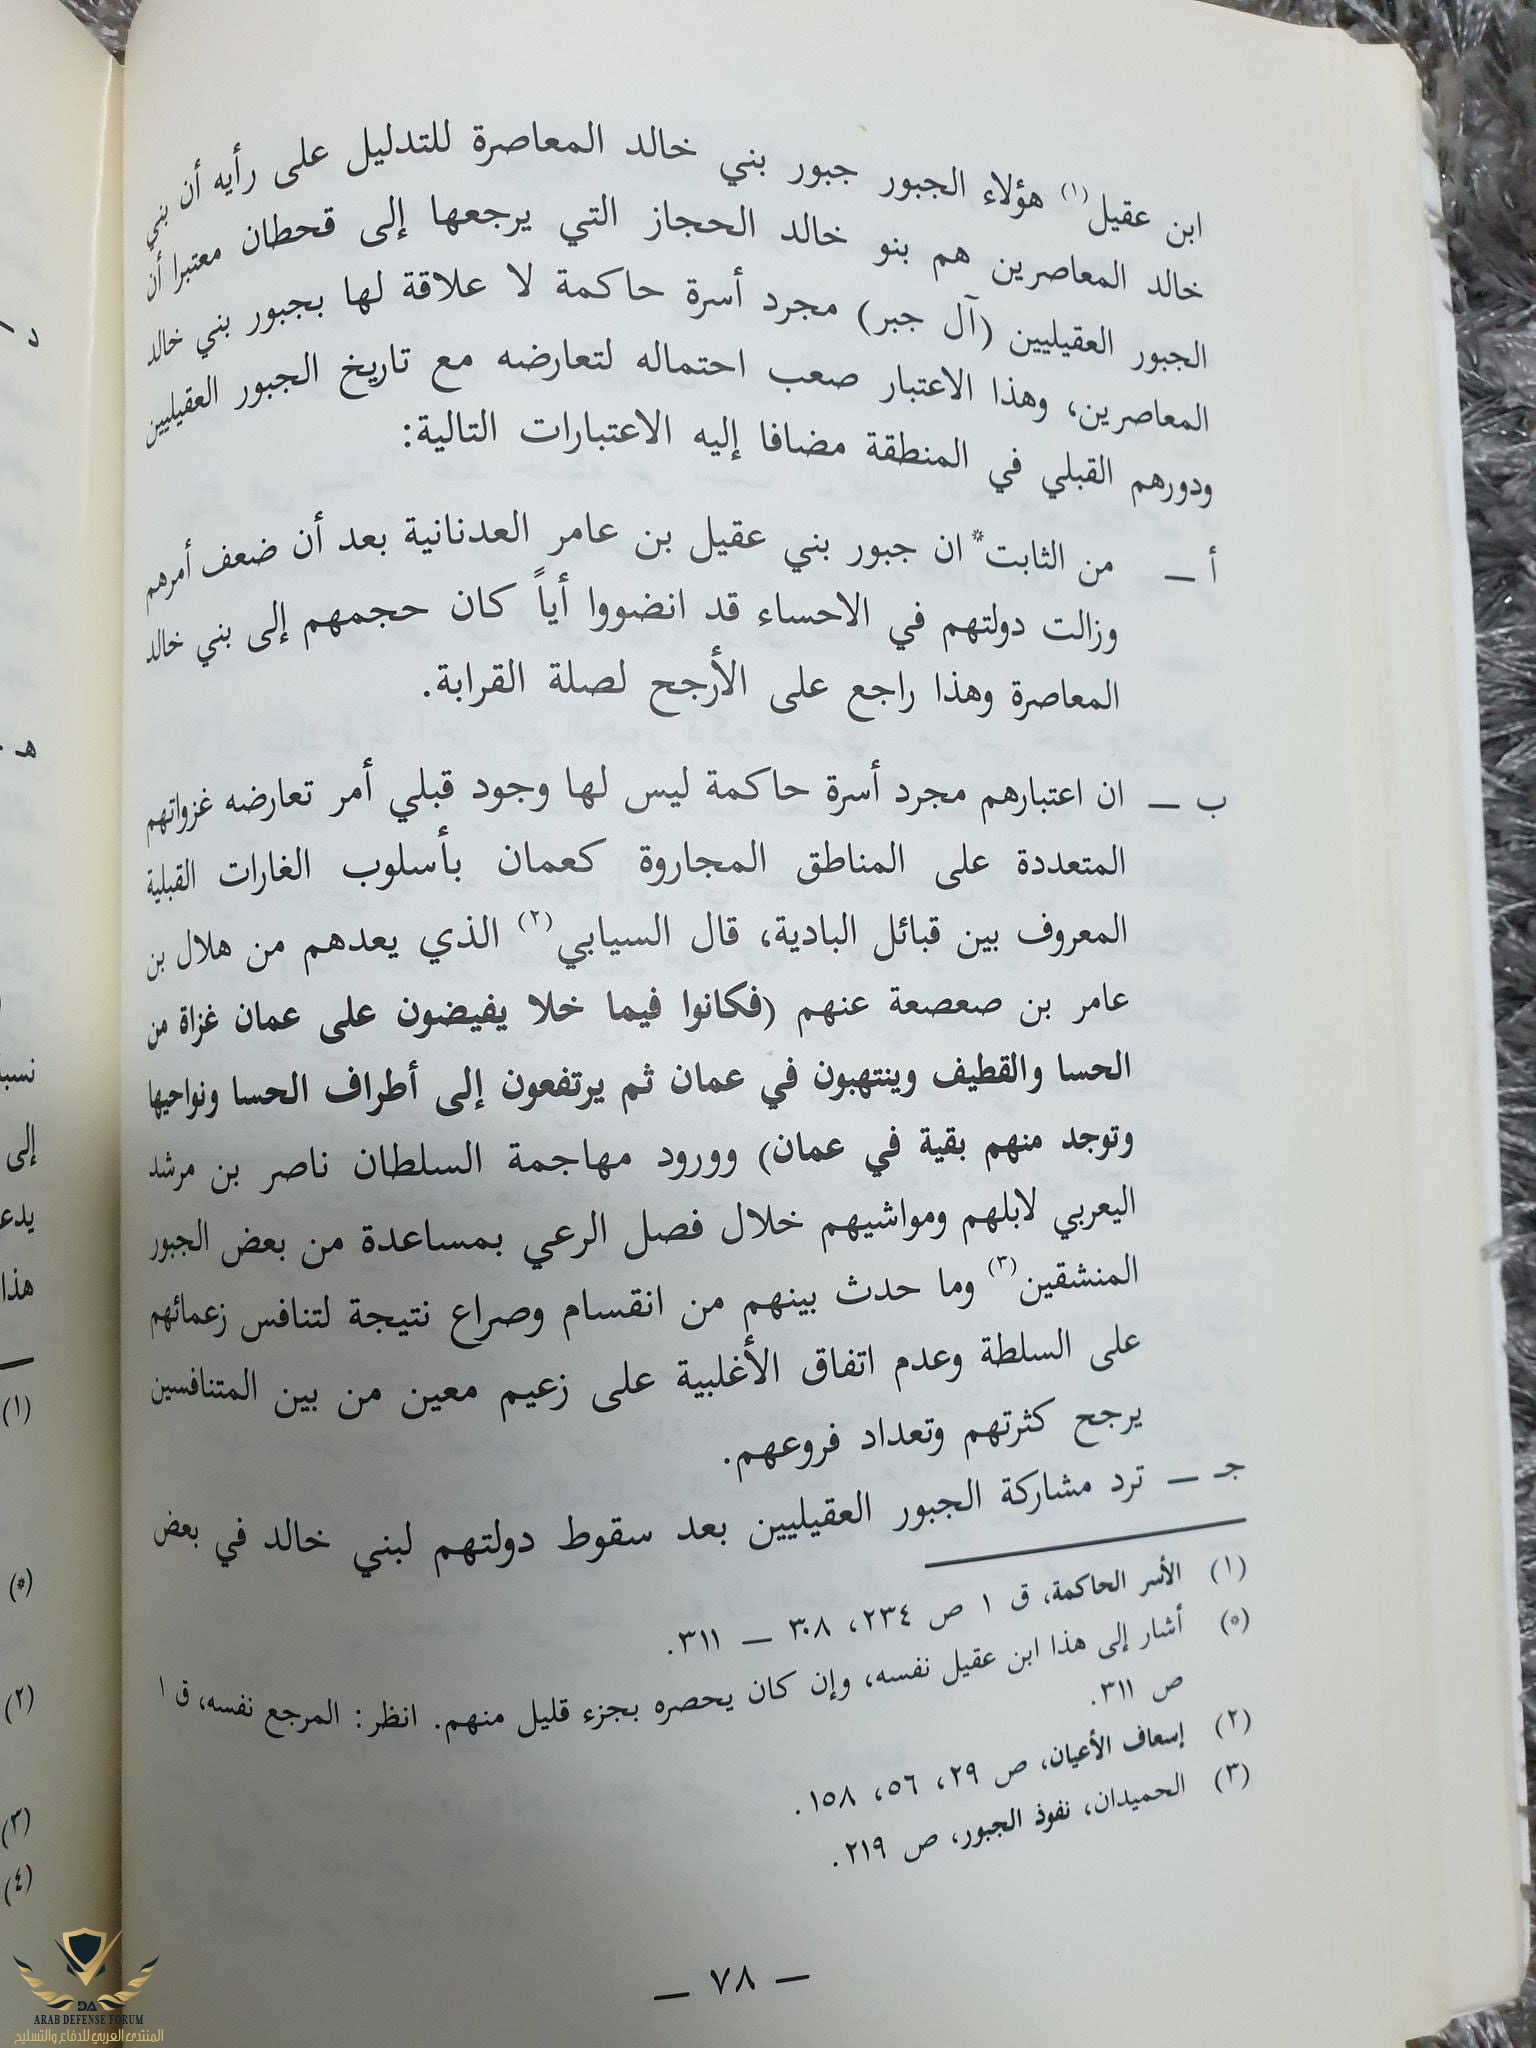 ابن عقيل(١) هؤلاء الجبور جبور بني خالد المعاصرة للتدليل على رأيه أن بني
خالد المعاصرين هم بنو خالد الحجاز التي يرجعها إلى قحطان معتبرا أن
الجبور العقيليين (آل جبر) مجرد أسرة حاكمة لا علاقة لها بجبور بني خالد
المعاصرين، وهذا الاعتبار صعب احتماله لتعارضه مع تاريخ الجبور العقيليين
ودورهم القبلي في المنطقة مضافا إليه الاعتبارات التالية:
أ — من الثابت* ان جبور بني عقيل بن عامر العدنانية بعد أن ضعف أمرهم
وزالت دولتهم في الاحساء قد انضووا أياً كان حجمهم إلى بني خالد
المعاصرة وهذا راجع على الأرجح لصلة القرابة.
ب — ان اعتبارهم مجرد أسرة حاكمة ليس لها وجود قبلي أمر تعارضه غزواتهم
المتعددة على المناطق المجاروة كعمان بأسلوب الغارات القبلية
المعروف بين قبائل البادية، قال السيابي(٢) الذي يعدهم من هلال بن
عامر بن صعصعة عنهم (فكانوا فيما خلا يفيضون على عمان غزاة من
الحسا والقطيف وينتهبون في عمان ثم يرتفعون إلى أطراف الحسا ونواحيها
وتوجد منهم بقية في عمان) وورود مهاجمة السلطان ناصر بن مرشد
اليعربي لابلهم ومواشيهم خلال فصل الرعي بمساعدة من بعض الجبور
المنشقين(٣) وما حدث بينهم من انقسام وصراع نتيجة لتنافس زعمائهم
على السلطة وعدم اتفاق الأغلبية على زعيم معين من بين المتنافسين
يرجح كثرتهم وتعداد فروعهم.
جـ — ترد مشاركة الجبور العقيليين بعد سقوط دولتهم لبني خالد في بعض
(١) الأسر الحاكمة، ق ١ ص ٢٣٤، ٣٠٨ — ٣١١.
(*) أشار إلى هذا ابن عقيل نفسه، وإن كان يحصره بجزء قليل منهم. انظر: المرجع نفسه، ق ١
ص ٣١١.
(٢) إسعاف الأعيان، ص ٢٩، ٥٦، ١٥٨.
(٣) الحميدان، نفوذ الجبور، ص ٢١٩.
— ٧٨ —
هـ
إلى
هذا
(١)
(*)
(٢)
(٣)
(٤)
DA
ARAB DEFENSE FORUM
المنتدى العربي للدفاع والتسليح